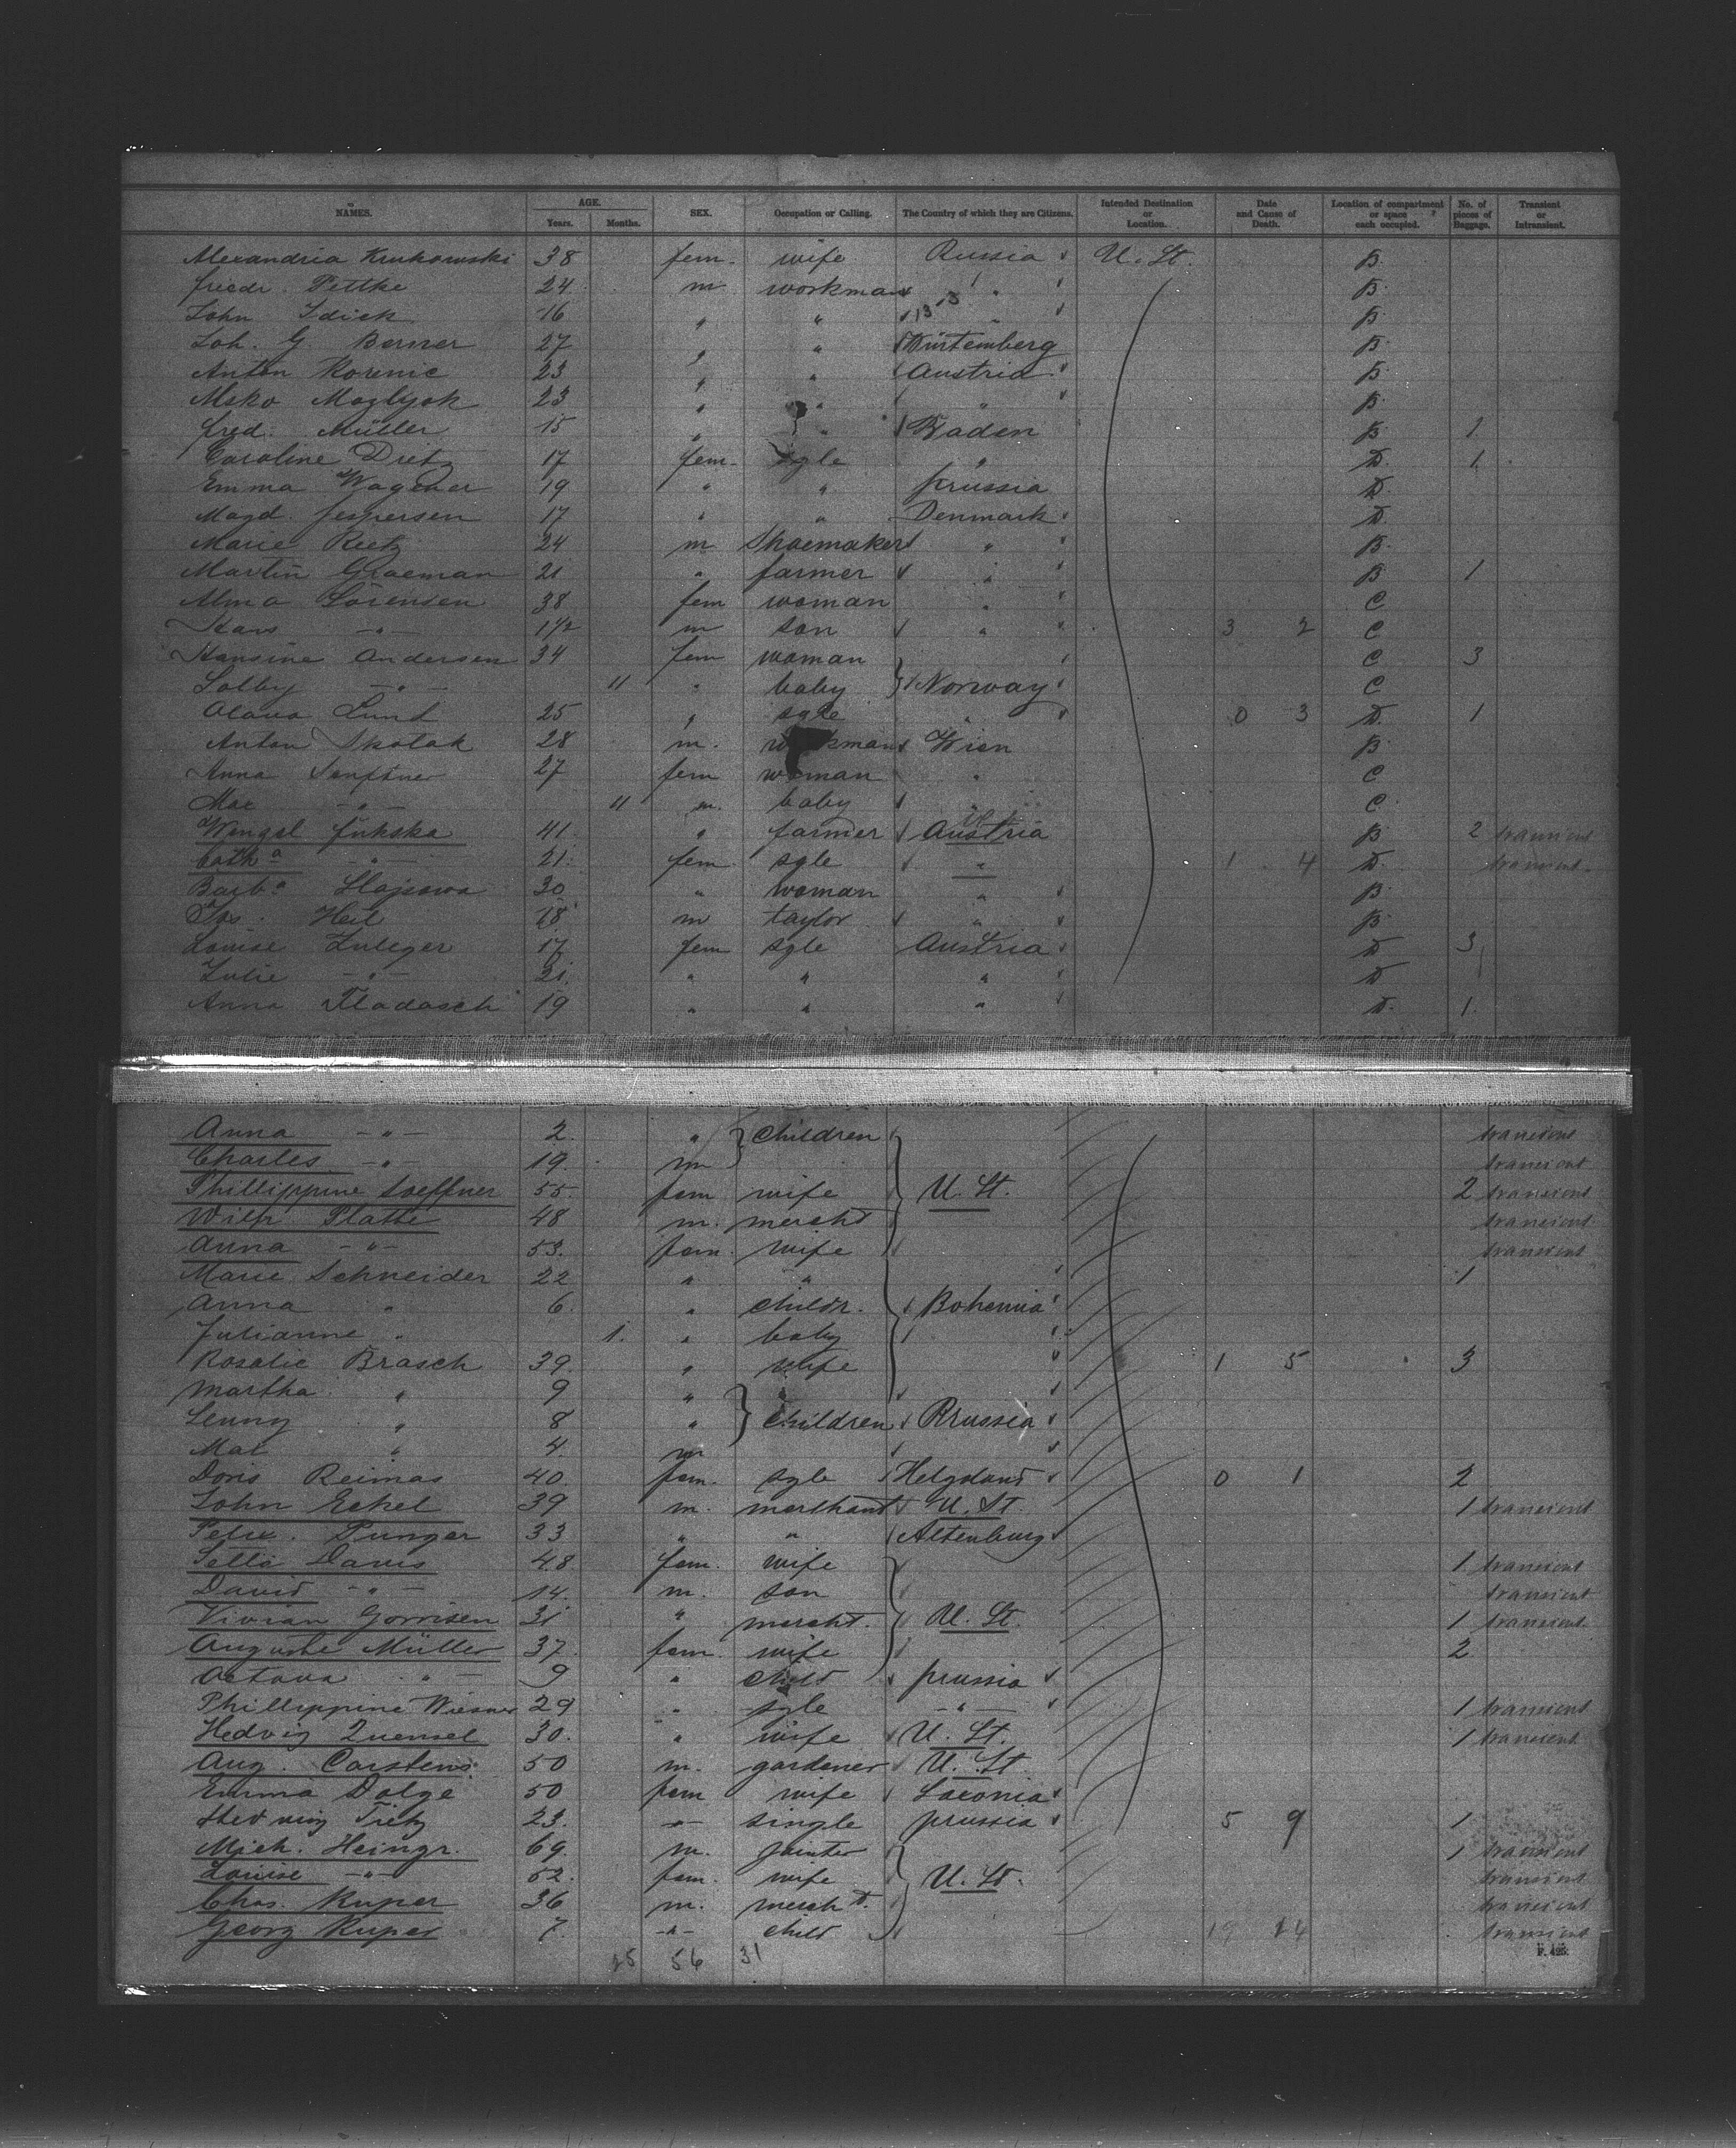 NAMES. AGE. Years. Months. SEX. Occupation or Calling. The Country of which they are Citizens. Intended Destination or Location. Date and Cause of Death. Location of compartment or space each occupied. No. of pieces of Baggage. Transient or Intransient.
Alexandria Krukowski 38 fem. wife Russia U. St. B.
friedr. Pettke 24 m workman " B.
John Idick 16 " " " B.
Joh. G. Berner 27 " " Würtemberg B.
Anton Korenic 23 " " Austria B.
Meko Mozlyok 23 " " " B.
fred. Müller 15 " " Baden B. 1
Caroline Dietz 17 fem. sgle " D. 1
Emma Wagener 19 " " prussia D.
Magd. Jespersen 17 " " Denmark D.
Marie Reetz 24 m Shoemaker " B.
Martin Graeman 21 " farmer " B. 1
Alma Sörensen 38 fem woman " C
Hans -"- 1½ m son " 3 2 C
Hansine Andersen 34 fem woman C 3
Solby -"- 11 " baby Norway C
Olava Lund 25 " sgle " 0 3 D. 1
Anton Skolak 28 m. workman Wien B.
Anna Senftner 27 fem woman " C
Max -"- 11 m. baby C
Wenzel fükska 41 " farmer Austria B 2 transient
Cath a -"- 21 fem sgle " 1 4 D. transient.
Barba Hajsowa 30 " woman " B.
Jos. Heil 18 m taylor " B.
Louise Zuleger 17 fem sgle Austria D 3
Julie -"- 21 " " " D
Anna Fladasch 19 " " " D. 1.
Anna -"- 2. " children transient
Charles -"- 19. m transient
Phillippine Soeffner 55. fem wife U. St. 2 transient
Wilh. Platte 48 m. mercht transient.
Anna -"- 53. fem. wife transient
Marie Schneider 22 " " 1
Anna " 6. " childr. Bohemia
Julianne " 1. " baby
Rosalie Brasch 39. " wife 1 5 3
Martha " 9 " "
Lenny " 8 " children Prussia
Max " 4. m
Doris Reimas 40. fem. sgle Helgoland 0 1 2
John Eckel 39 m. merthant U. St. 1 transient
Felix. Punger 33 " " Altenburg
Jette Davis 48 fem. wife 1 transient
David -"- 14. m. son transient
Vivian Gorrisen 31 " mercht. U. St. 1 transient.
Auguste Müller 37. fem. wife 2.
Octava " 9 " child prussia
Phillippine Wiesner 29 " sgle -"- 1 transient
Hedvig Quensel 30. " wife U. St. 1 transient
Aug. Carstens 50 m. gardener U. St
Emma Dolge 50 fem wife Saxonia
Hedwig Tietz 23. -"- single prussia 5 9 1
Mich. Heingr. 69. m. painter 1 transient
Louise -"- 52. fem. wife U. St. transient
Chas. Kuper 36 m. mercht. transient
Georg Kuper 7. -"- child 19 14 transient
25 56 31